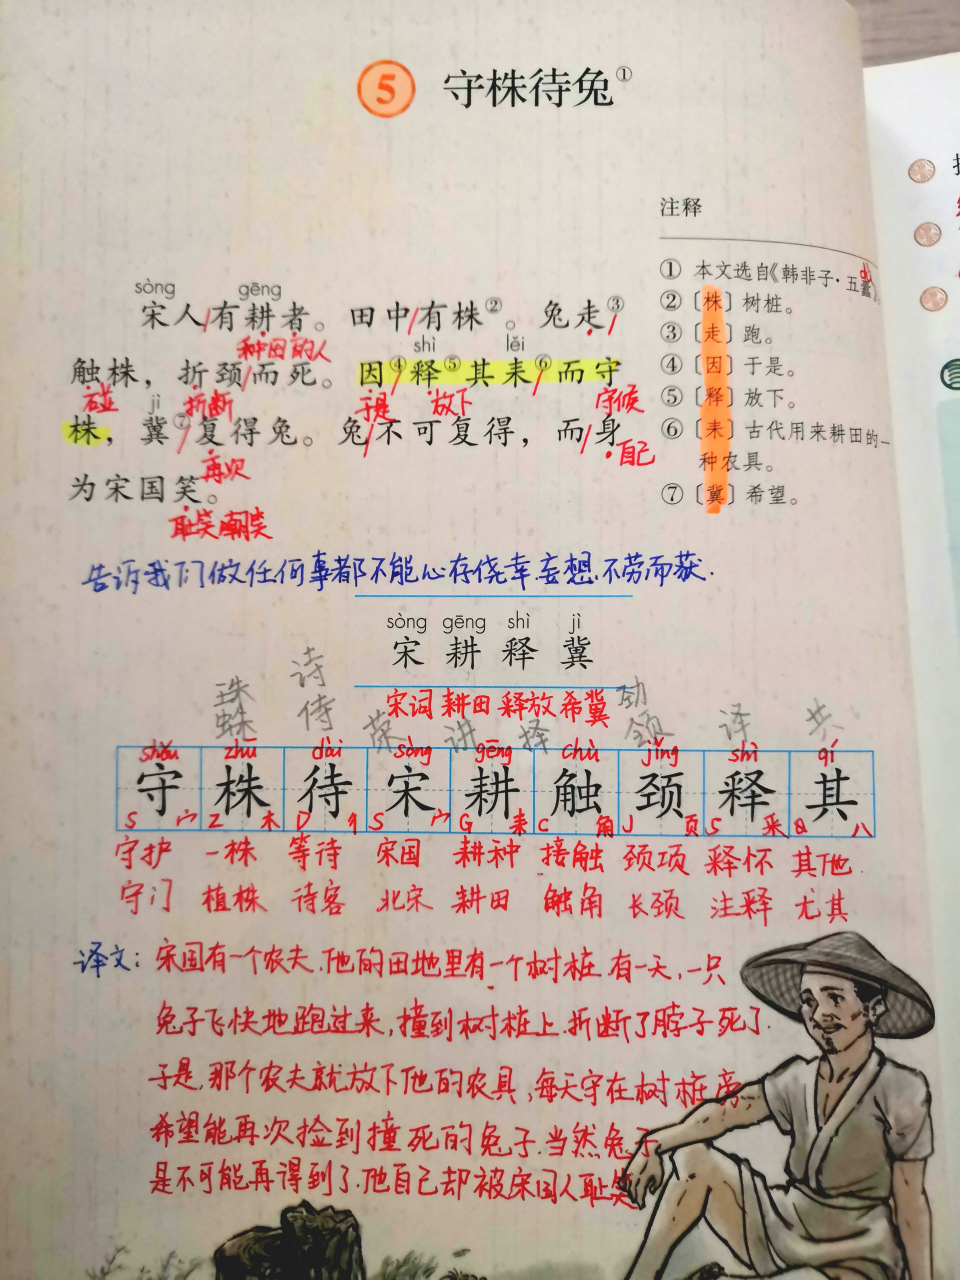 5 守株待兔①
注释
① 本文选自《韩非子·五蠹》。
dù
②〔株〕树桩。
③〔走〕跑。
④〔因〕于是。
⑤〔释〕放下。
⑥〔耒〕古代用来耕田的一
种农具。
⑦〔冀〕希望。
sòng gēng
宋人/有耕者。田中/有株②。兔走③/
种田的人 shì lěi
触株，折颈/而死。因④/释⑤其耒⑥/而守
碰 jì 折断 于是 放下 守候
株，冀⑦/复得兔。兔/不可复得，而/身
再次 自己
为宋国笑。
耻笑 嘲笑
告诉我们做任何事都不能心存侥幸妄想.不劳而获.
sòng gēng shì jì
宋 耕 释 冀
宋词 耕田 释放 希冀
诗 劲
珠
蛛 侍 荣 讲 择 领 译 共
shǒu zhū dài sòng gēng chù jǐng shì qí
守 株 待 宋 耕 触 颈 释 其
S 宀 Z 木 D 彳 S 宀 G 耒 C 角 J 页 S 釆 Q 八
守护 一株 等待 宋国 耕种 接触 颈项 释怀 其他
守门 植株 待客 北宋 耕田 触角 长颈 注释 尤其
译文：宋国有一个农夫.他的田地里有一个树桩.有一天，一只
兔子飞快地跑过来，撞到树桩上.折断了脖子死了.
于是，那个农夫就放下他的农具，每天守在树桩旁，
希望能再次捡到撞死的兔子.当然兔子
是不可能再得到了.他自己却被宋国人耻笑